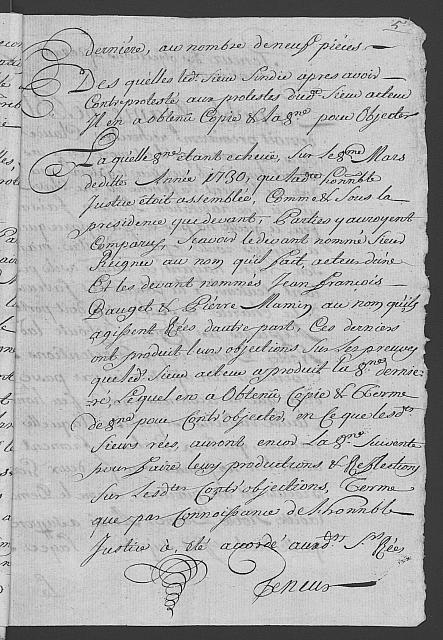 5
derniére, au nombre de neuf piéces.
Des quelles led.t Sieur Sindic apres avoir
Contreprotesté aux protestes dudt Sieur acteur
Il en a obtenu Copie & la 8.ne pour Objecter
La quelle 8.ne etant echeüe, Sur le 8.me Mars
de dite Année 1730, que ladte honnble
Justice étoit assemblée, Comme & Sous la
presidence que devant, Parties y auroyent
Comparus, Scavoir le devant nommé Sieur
au nom qu'il fait, acteur d'une
Et les devant nommés Jean François
Bauget & Pierre Mamin au nom qu'ils
agissent Rées d'autre part, Ces derniers
ont produit leurs objections Sur les preuves
que led.t Sieur acteur a produit la 8.ne dernie-
re, Lequel en a Obtenu Copie & Terme
de 8.ne pour Contr'objecter, en Ce que lesd.ts
Sieurs rées, auront encor La 8.ne Suivante
pour faire leurs productions & Reflections
Sur Lesdtes Contr'objections, Terme
que par Connoissance de l'honnble
Justice à, été accordé auxdts Srs Rées